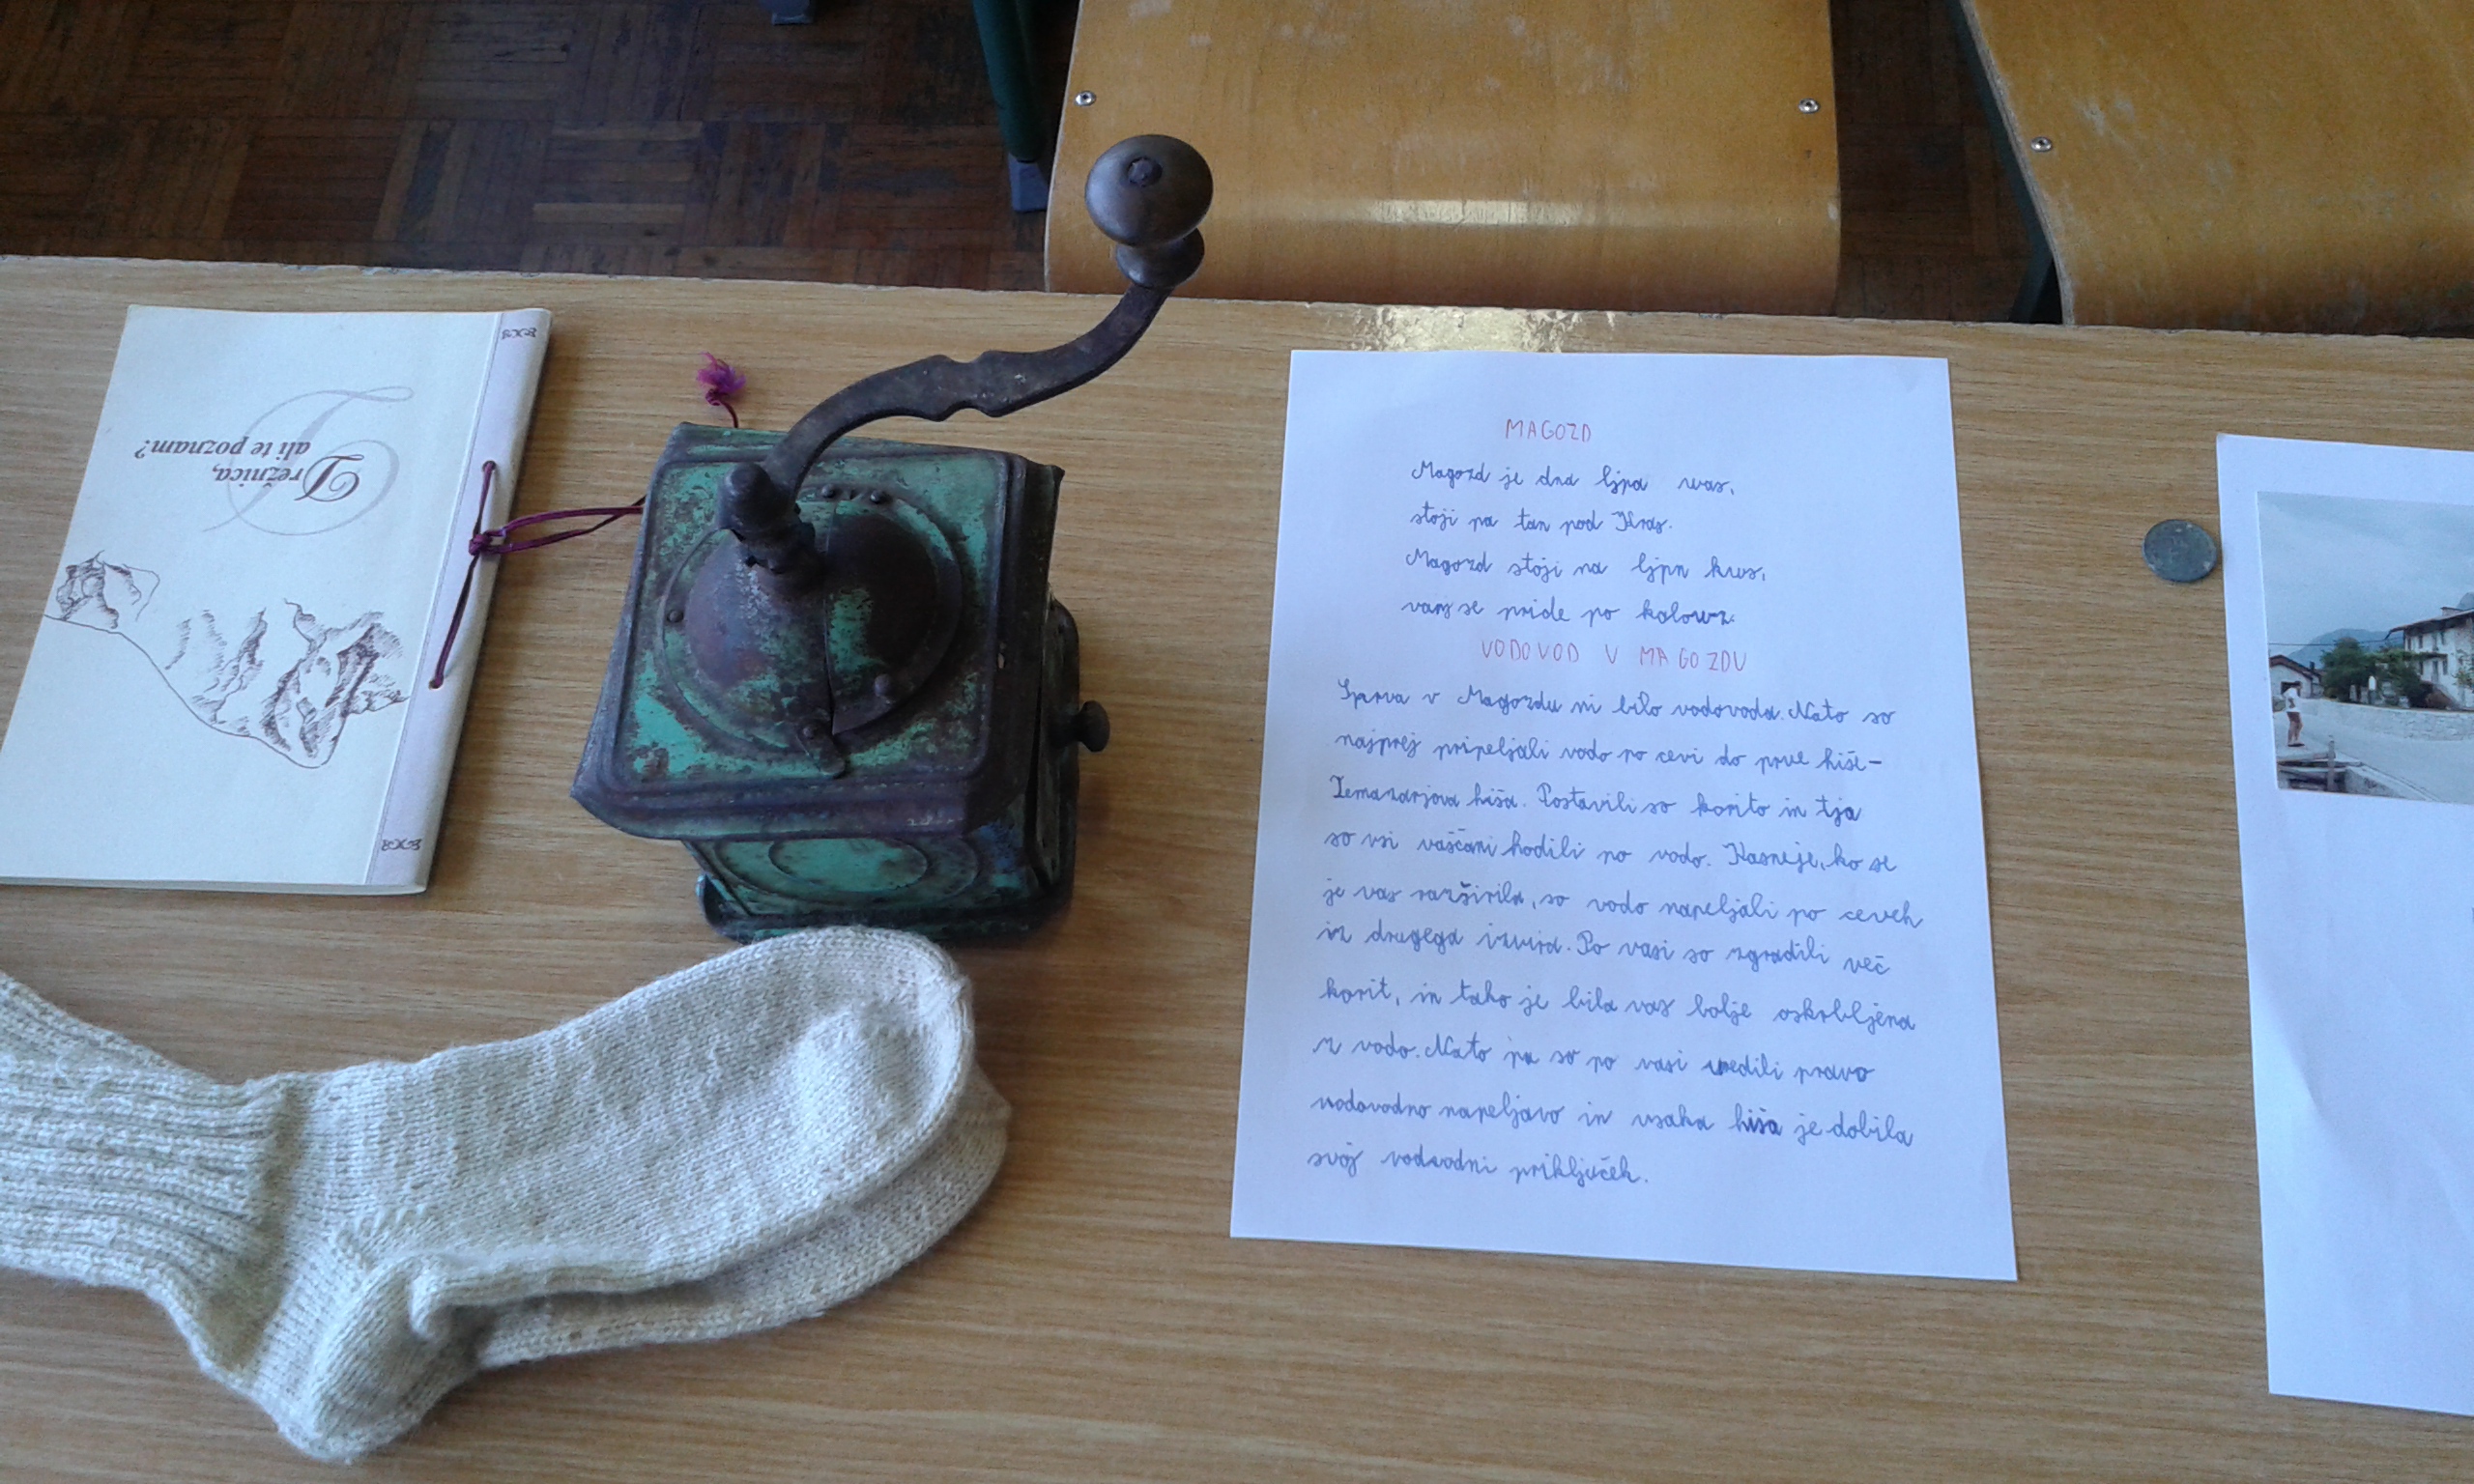 Drežnica,
ali te poznam?
MAGOZD
Magozd je dna ljpa was,
stoji pa tan pod Kras.
Magozd stoji na ljpn kws,
vanj se pride po kolowz.
VODOVOD V MAGOZDU
Sprva v Magozdu ni bilo vodovoda. Nato so
najprej pripeljali vodo po cevi do prve hiše-
hiša. Postavili so korito in tja
so vsi vaščani hodili po vodo. Kasneje, ko se
je vas razširila, so vodo napeljali po ceveh
iz drugega izvira. Po vasi so zgradili več
korit, in tako je bila vas bolje oskrbljena
z vodo. Nato pa so po vasi uredili pravo
vodovodno napeljavo in vsaka hiša je dobila
svoj vodvodni priključek.